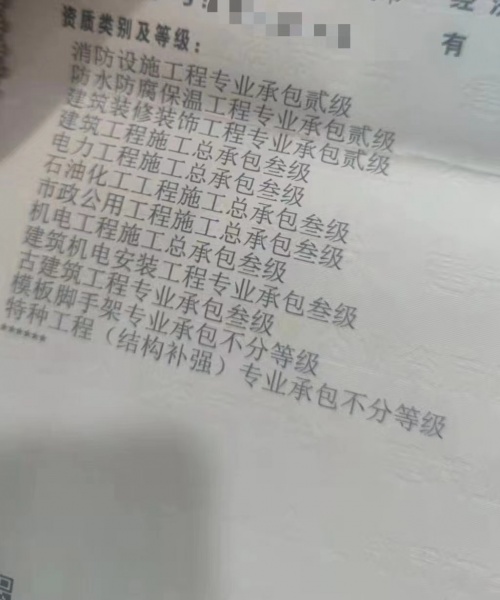 经
资质类别及等级：
有
消防设施工程专业承包贰级
防水防腐保温工程专业承包贰级
建筑装修装饰工程专业承包贰级
建筑工程施工总承包叁级
电力工程施工总承包叁级
石油化工工程施工总承包叁级
市政公用工程施工总承包叁级
机电工程施工总承包叁级
建筑机电安装工程专业承包叁级
古建筑工程专业承包叁级
模板脚手架专业承包不分等级
特种工程（结构补强）专业承包不分等级
******